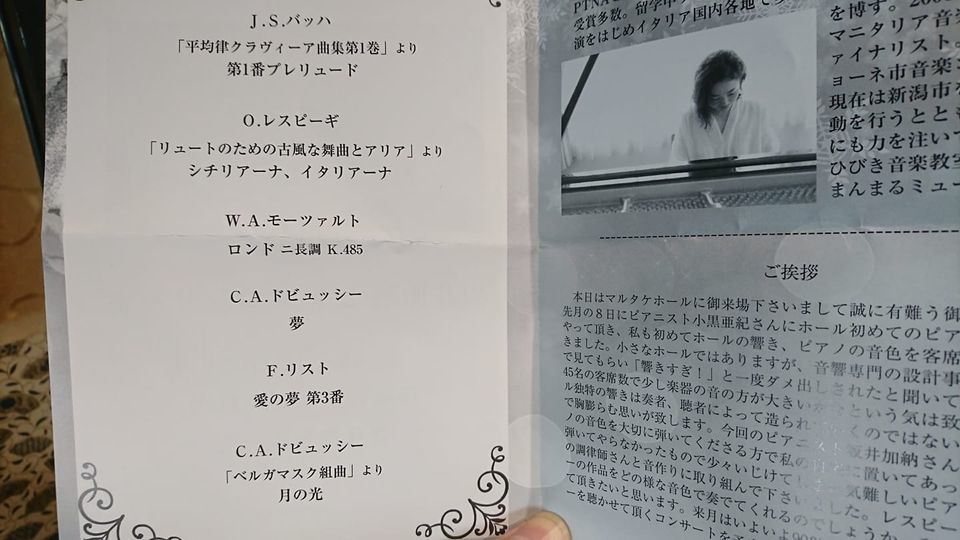 J.S.バッハ
「平均律クラヴィーア曲集第1巻」より
第1番プレリュード
O.レスピーギ
「リュートのための古風な舞曲とアリア」より
シチリアーナ、イタリアーナ
W.A.モーツァルト
ロンド ニ長調 K.485
C.A.ドビュッシー
夢
F.リスト
愛の夢 第3番
C.A.ドビュッシー
「ベルガマスク組曲」より
月の光
受賞多数。留学中
演をはじめイタリア国内各地で
を博す。
マニタリア音楽
ァイナリスト。
ョーネ市音楽
現在は新潟市を
動を行うととも
にも力を注いで
ひびき音楽教室
まんまるミュー
ご挨拶
本日はマルタケホールに御来場下さいまして誠に有難う御
先月の8日にピアニスト小黒亜紀さんにホール初めてのピア
やって頂き、私も初めてホールの響き、ピアノの音色を客席
きました。小さなホールではありますが、音響専門の設計事
で見てもらい「響きすぎ!」と一度ダメ出しされたと聞いて
45名の客席数で少し楽器の音の方が大きい という気は致
ル独特の響きは奏者、聴者によって造られ くのではない
で胸膨らむ思いが致します。今回のピアニ 坂井加納さん
ノの音色を大切に弾いてくださる方で私の に置いてあっ
弾いてやらなかったもので少々いじけてし 気難しいピア
の調律師さんと音作りに取り組んで下さい ました。レスピー
ーの作品をどの様な音色で奏でてくれるのでしょうか
て頂きたいと思います。来月はいよいよ
ーを聴かせて頂くコンサートを